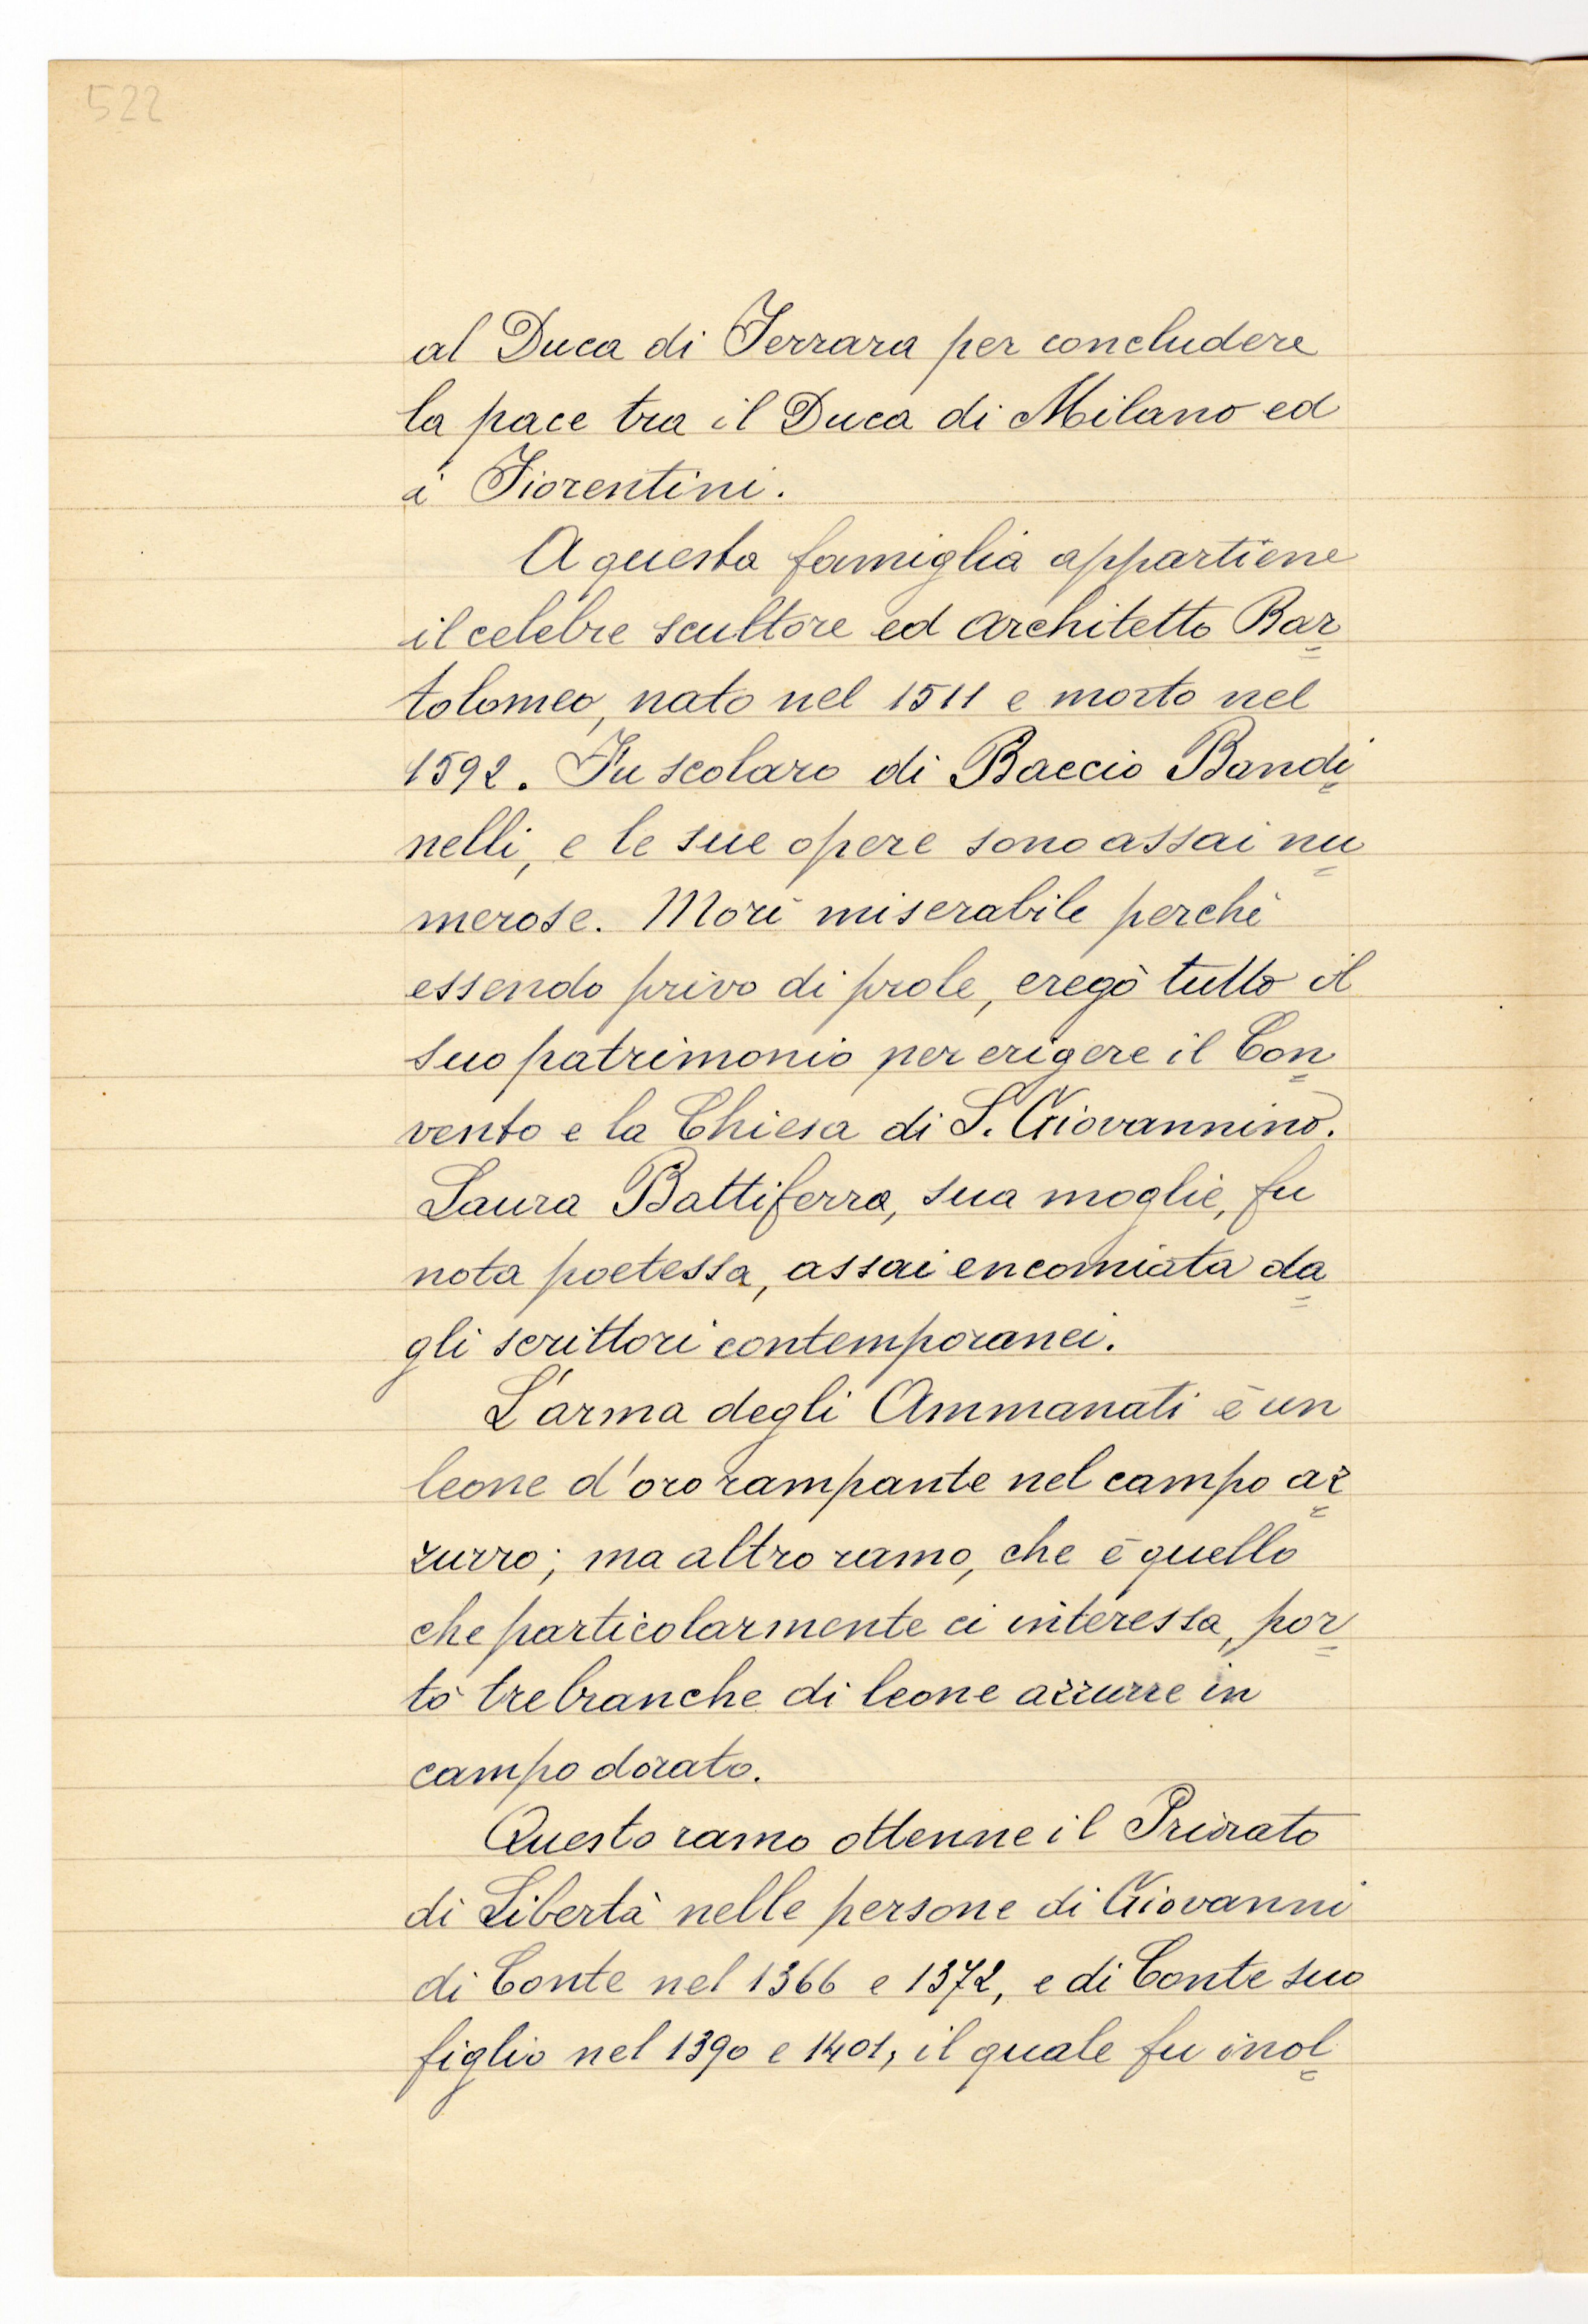 522
al Duca di Ferrara per concludere
la pace tra il Duca di Milano ed
i Fiorentini.
A questa famiglia appartiene
il celebre scultore ed architetto Bar=
tolomeo, nato nel 1511 e morto nel
1592. Fu scolaro di Baccio Bandi=
nelli, e le sue opere sono assai nu=
merose. Morì miserabile perchè
essendo privo di prole, erogò tutto il
suo patrimonio per erigere il Con=
vento e la Chiesa di S. Giovannino.
Laura Battiferra, sua moglie, fu
nota poetessa, assai encomiata da=
gli scrittori contemporanei.
L'arma degli Ammanati è un
leone d'oro rampante nel campo az=
zurro; ma altro ramo, che è quello
che particolarmente ci interessa, por=
tò tre branche di leone azzurre in
campo dorato.
Questo ramo ottenne il Priorato
di Libertà nelle persone di Giovanni
di Conte nel 1366 e 1372, e di Conte suo
figlio nel 1390 e 1401, il quale fu inol=